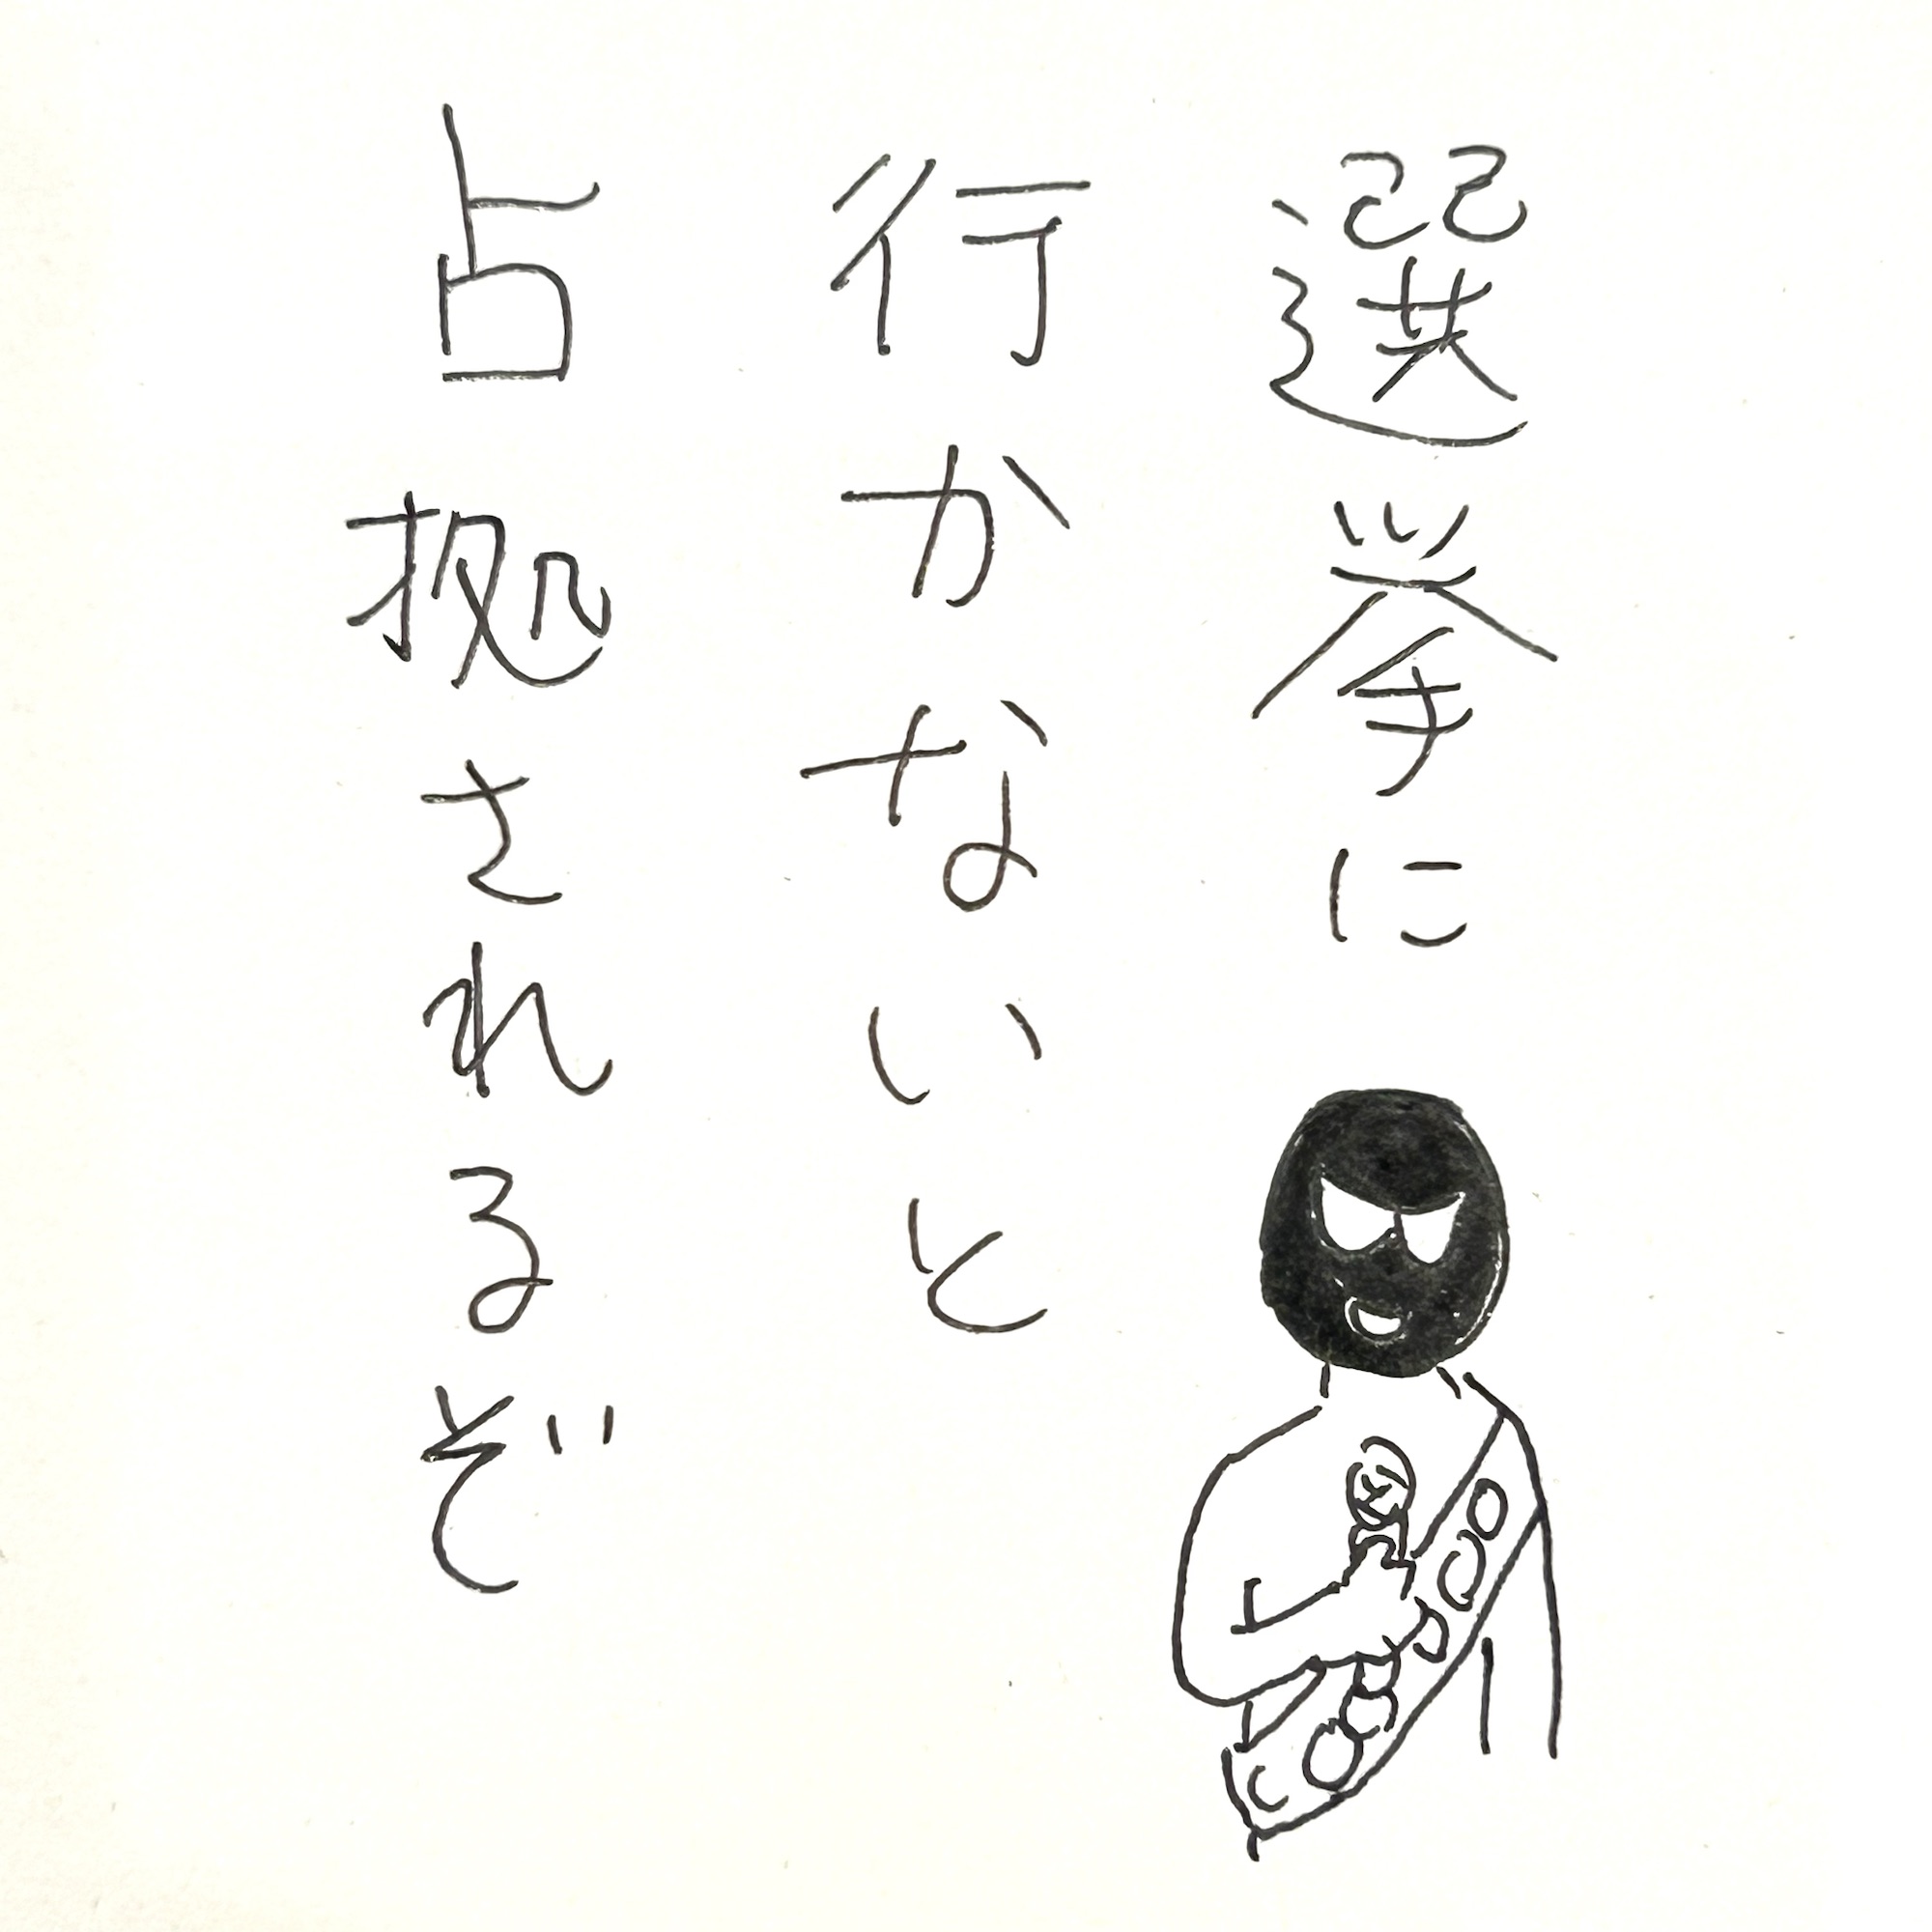 選挙に
行かないと
占拠されるぞ